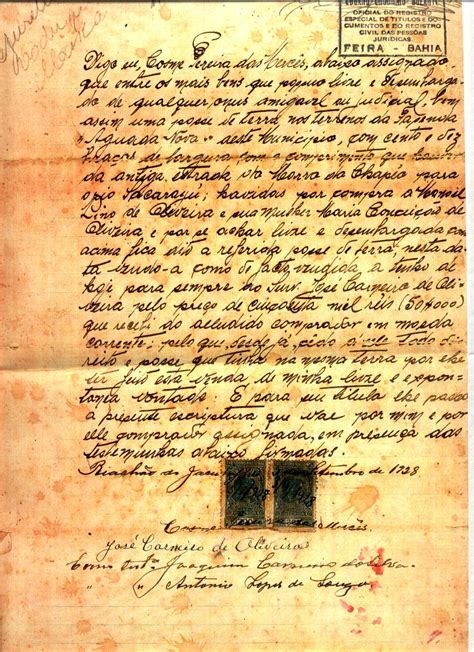 OFICIAL DO REGISTRO
ESPECIAL DE TITULOS E DO-
CUMENTOS E DO REGISTRO
CIVIL DAS PESSOAS
JURIDICAS.
FEIRA - BAHIA
Digo eu, Cosme Pereira das Mercês, abaixo assignado,
que entre os mais bens que possuo livre e desembarga-
do de qualquer onus amigavel ou judicial, bem
assim uma posse de terra nos terrenos da Fazenda
"Aguada Nova" deste Municipio, com cento e dez
braças de largura com o comprimento que
da antiga estrada do Morro do Chapéo para
o rio Jacaraú; havidas por compra a Manoel
Lino de Oliveira e sua mulher Maria Conceição de
Oliveira e por se achar livre e desembargada como
acima fica dito a referida posse de terra, nesta da-
ta vendo-a como de facto vendida a tenho de
hoje para sempre ao Snr. José Carneiro de Oli-
veira pelo preço de cincoenta mil réis (50$000)
que recebi do alludido comprador em moeda
corrente; pelo que desde já, cedo a elle todo di-
reito e posse que tinha na mesma terra por
ter sido esta venda de minha livre e expon-
tania vontade. E para seu titulo lhe passo
a presente escriptura que vae por mim e por
elle comprador assignada, em presença das
testemunhas abaixo firmadas.
Riachão do Jacuipe setembro de 1928
Cosme das Mercês
José Carneiro de Oliveira
Como testª Joaquim Carneiro da Silva
" " Antonio Lopes de Souza